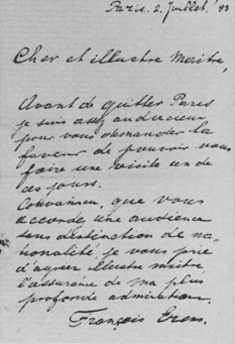 Paris. 2. Juillet. 93
Cher et illustre Maître,
Avant de quitter Paris
je suis assez audacieux
pour vous demander la
faveur de pouvoir vous
faire une visite un de
ces jours.
Convaincu, que vous
accorde une audience
sans destination de na-
tionalité, je vous prie
d'agréer illustre maître
l'assurance de ma plus
profonde admiration.
François